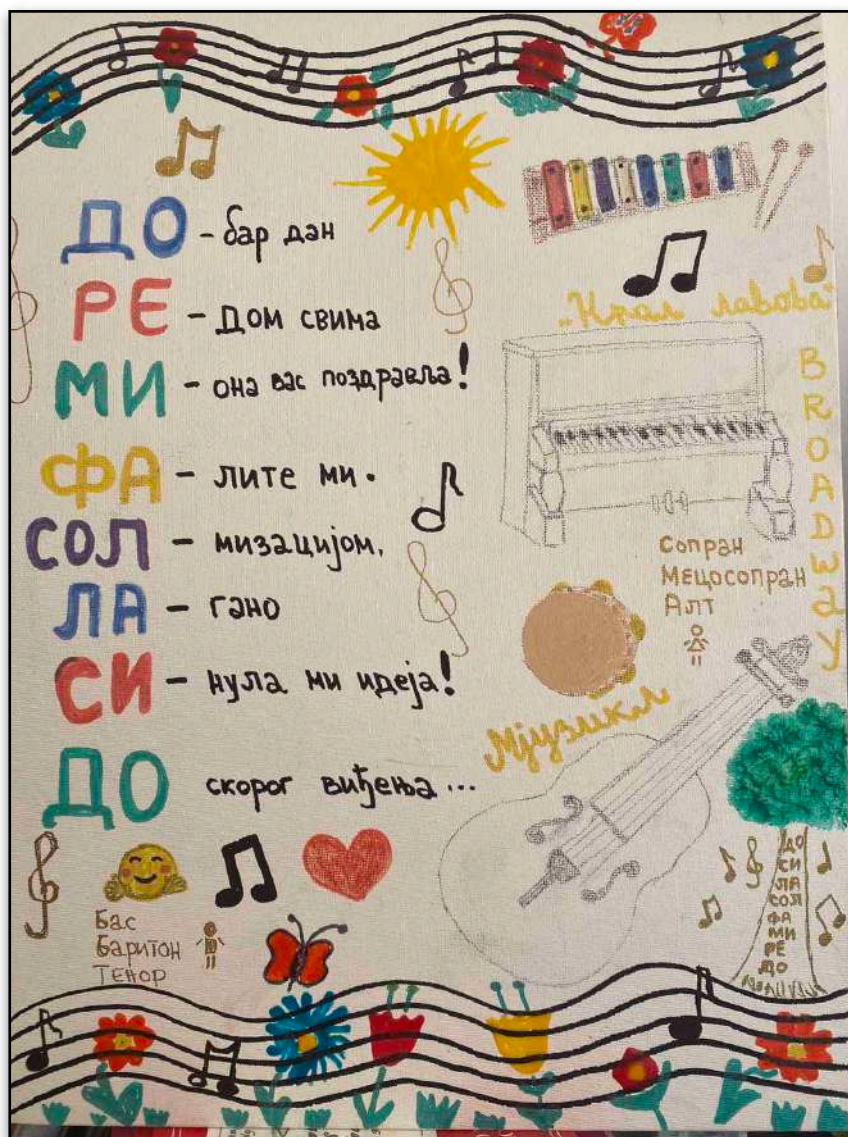 ДО - бар дан
РЕ - Дом свима
МИ - она вас поздравља!
ФА - лите ми.
СОЛ - мизацијом,
ЛА - гано
СИ - нула ми идеја!
ДО скорог виђења...
Бас
Баритон
Тенор
„Краљ лавова“
BROADWAY
Сопран
Мецосопран
Алт
Мјузикл
ДО
СИ
ЛА
СОЛ
ФА
МИ
РЕ
ДО